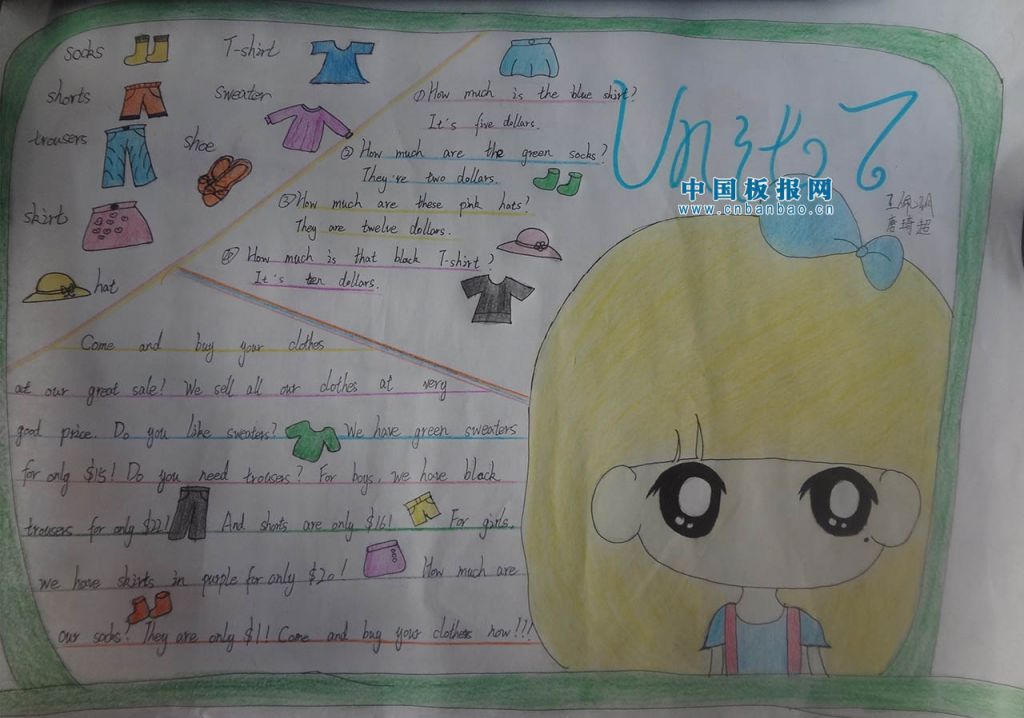 socks
T-shirt
shorts
sweater
trousers
shoe
skirt
hat
① How much is the blue shirt?
It's five dollars.
② How much are the green socks?
They're two dollars.
③ How much are these pink hats?
They are twelve dollars.
④ How much is that black T-shirt?
It's ten dollars.
Unit 7
中国板报网
www.cnbanbao.cn
唐琦超
Come and buy your clothes
at our great sale! We sell all our clothes at very
good price. Do you like sweaters? We have green sweaters
for only $15! Do you need trousers? For boys, we have black
trousers for only $22! And shorts are only $16! For girls,
we have skirts in purple for only $20! How much are
our socks? They are only $1! Come and buy your clothers now!!!